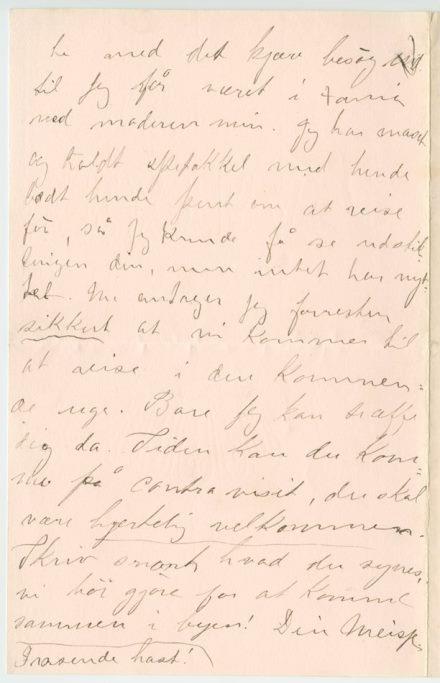 te med det kjære besøg
til jeg får været i
ved moderen min. Jeg har maset
og holdt spetakkel med hende
bedt hende pent om at reise
før, så jeg kunde få se udstil-
lingen din, men intet har nyt-
tet. Nu antager jeg forresten
sikkert at vi kommer til
at reise i den kommen-
de uge. Bare jeg kan træffe
dig da. Siden kan du kom-
me på contravisit, du skal
være hjertelig velkommen.
Skriv snart hvad du synes,
vi bör gjöre for at komme
sammen i byen! Din
I rasende hast!